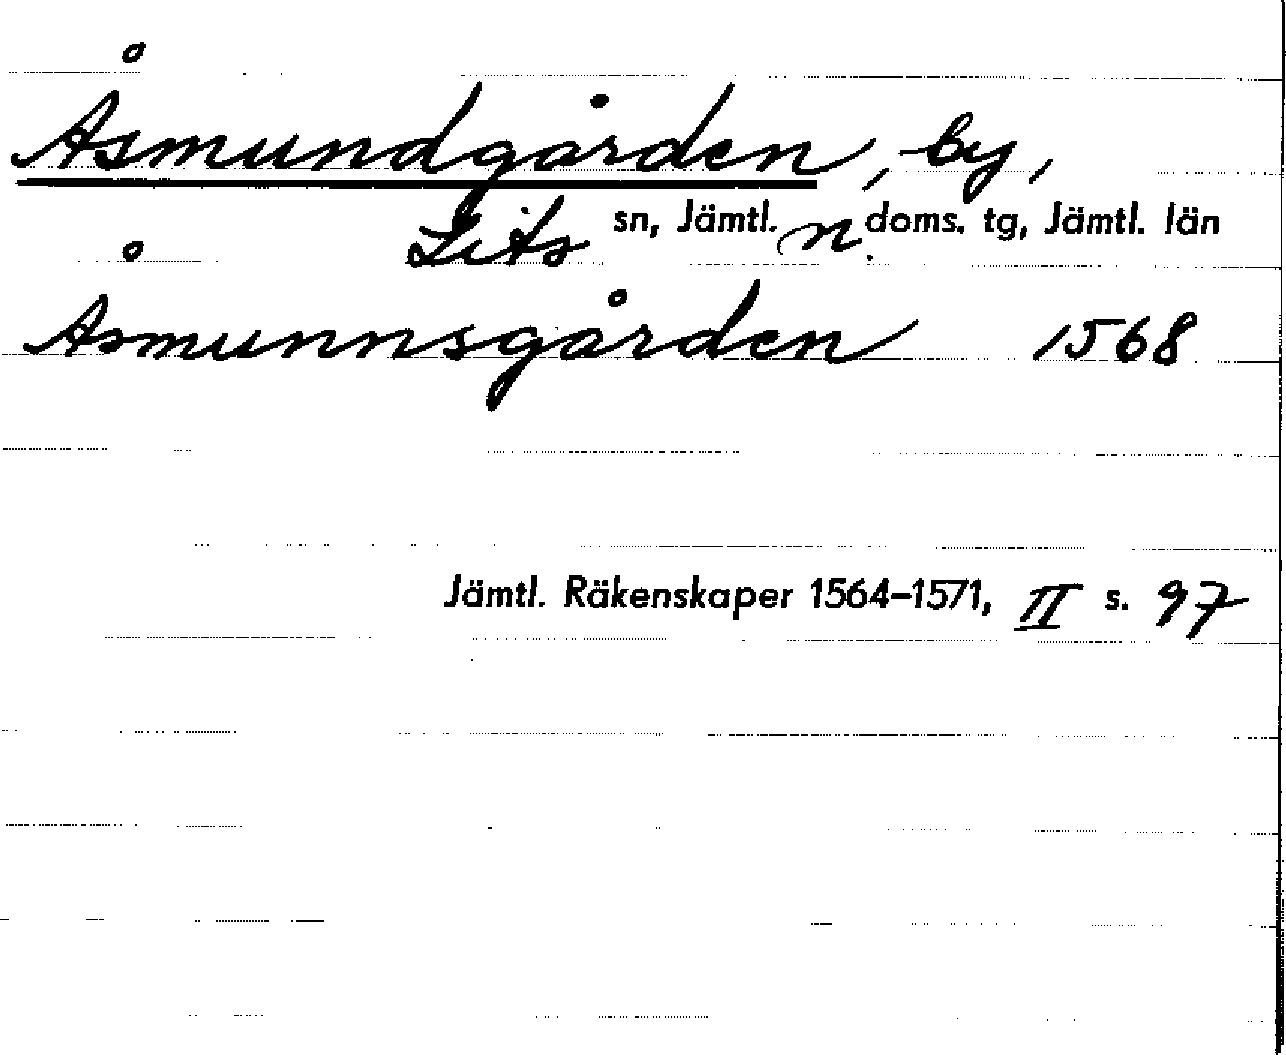 Åsmundgården, by,
Lits sn, Jämtl. n. doms. tg, Jämtl. län
Åsmunnsgården 1568
Jämtl. Räkenskaper 1564–1571, II s. 97